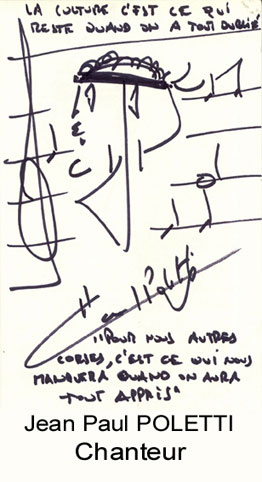 LA CULTURE C'EST CE QUI
RESTE QUAND ON A TOUT OUBLIÉ
"POUR NOUS AUTRES
CORSES, C'EST CE QUI NOUS
MANQUERA QUAND ON AURA
TOUT APPRIS"
Jean Paul POLETTI
Chanteur